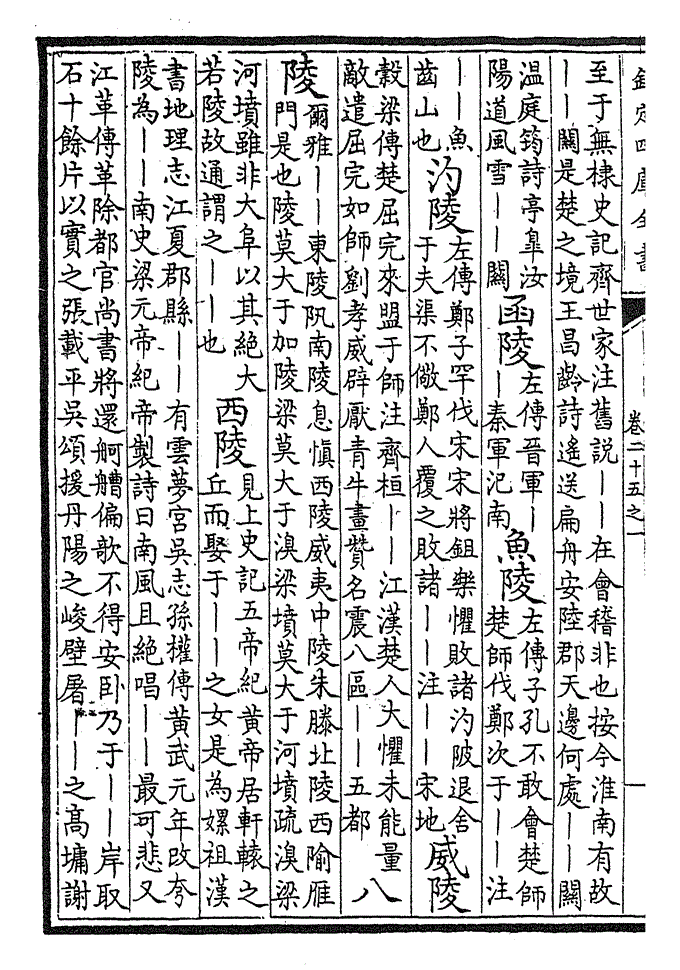 欽定四庫全書
卷二十五之一
至于無棣史記齊世家注舊說——在會稽非也按今淮南有故
——關是楚之境王昌齡詩遙送扁舟安陸郡天邊何處——關
溫庭筠詩亭臯汝
陽道風雪——關
函陵
左傳晉軍—
—秦軍氾南
魚陵
左傳子孔不敢會楚師
楚師伐鄭次于——注
——魚
齒山也
汋陵
左傳鄭子罕伐宋宋將鉏樂懼敗諸汋陂退舍
于夫渠不儆鄭人覆之敗諸——注——宋地
威陵
穀梁傳楚屈完來盟于師注齊桓——江漢楚人大懼未能量
敵遣屈完如師劉孝威辟厭青牛畫贊名震八區——五都
八
陵
爾雅——東陵阠南陵息愼西陵威夷中陵朱滕北陵西隃雁
門是也陵莫大于加陵梁莫大于湨梁墳莫大于河墳疏湨梁
河墳雖非大阜以其絕大
若陵故通謂之——也
西陵
見上史記五帝紀黃帝居軒轅之
丘而娶于——之女是為嫘祖漢
書地理志江夏郡縣——有雲夢宮吳志孫權傳黃武元年改夸
陵為——南史梁元帝紀帝製詩曰南風且絕唱——最可悲又
江革傳革除都官尚書將還舸艚偏欹不得安卧乃于——岸取
石十餘片以實之張載平吳頌援丹陽之峻壁屠——之高墉謝